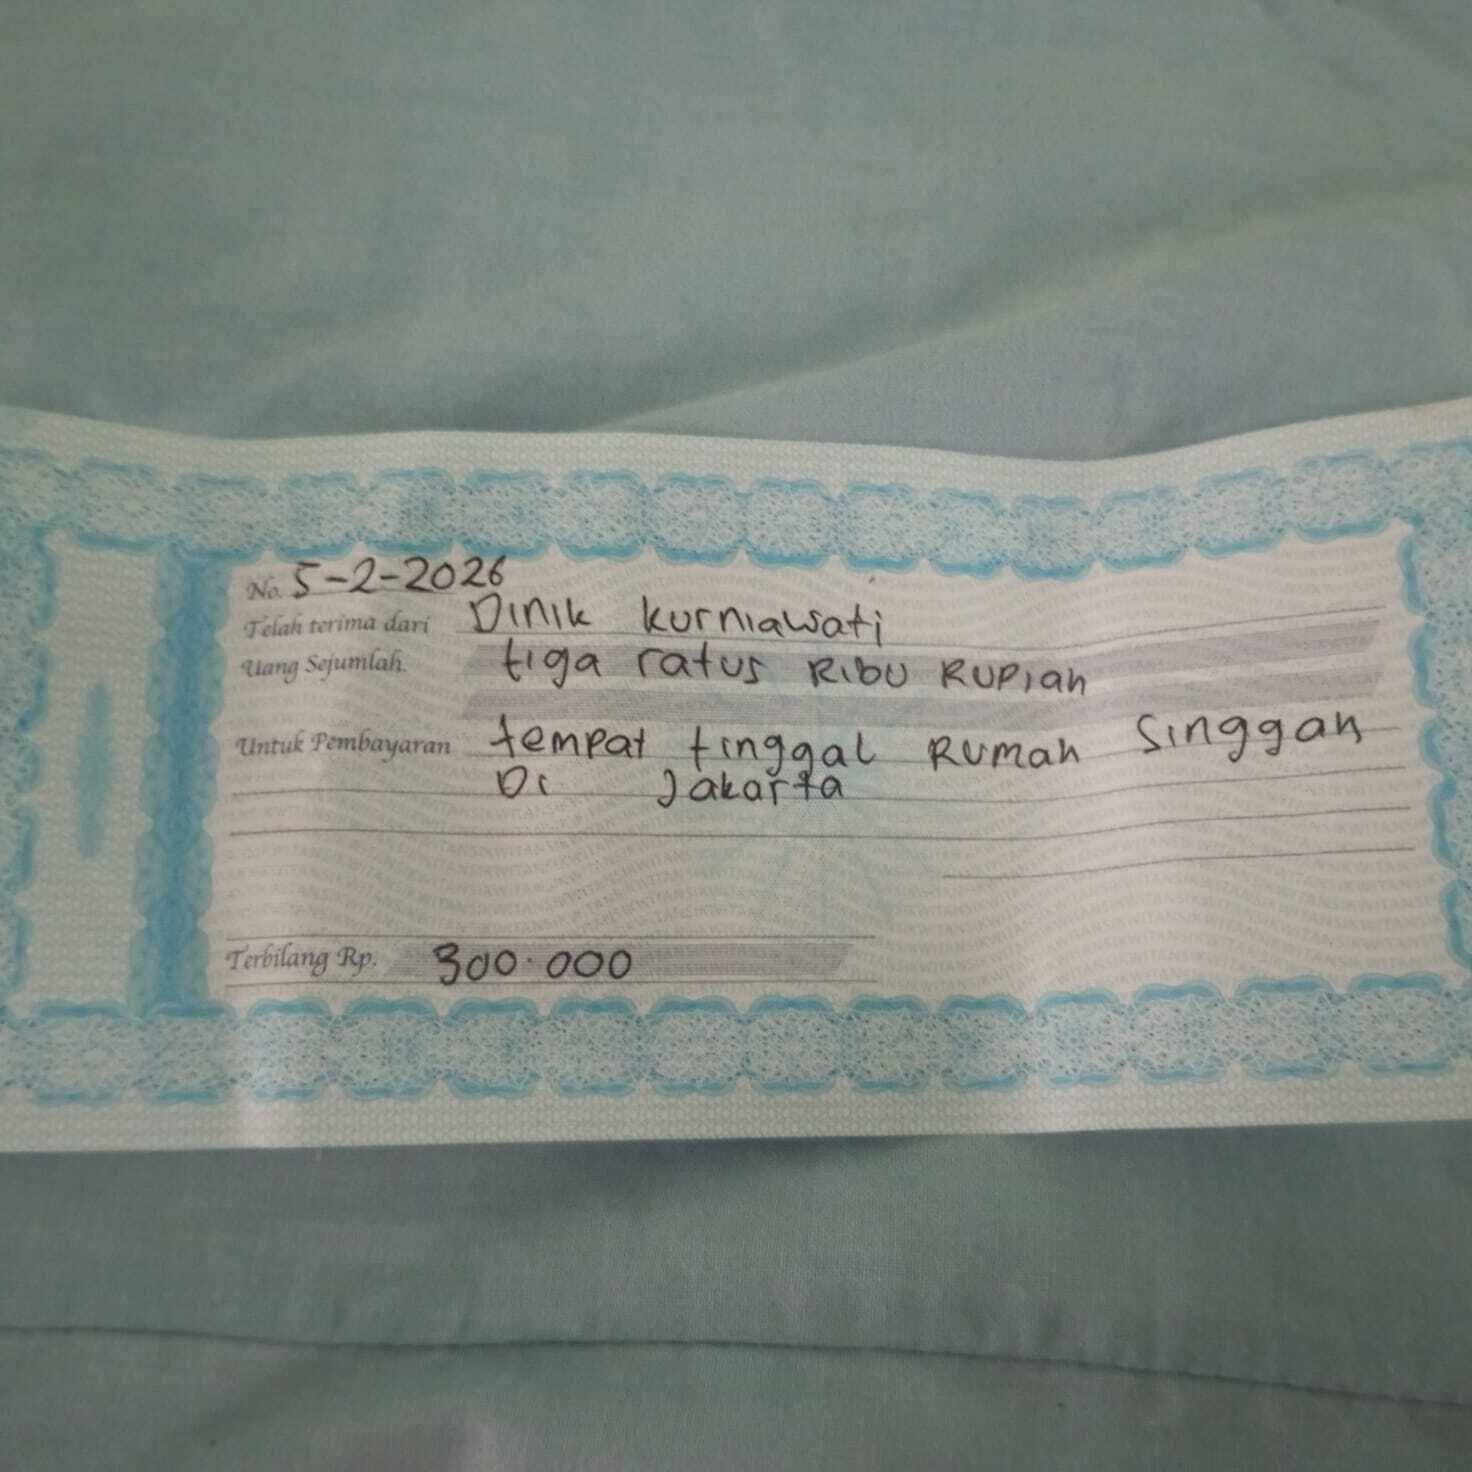 No. 5-2-2026
Telah terima dari Dinik kurniawati
Uang Sejumlah. tiga ratus Ribu Rupiah
Untuk Pembayaran tempat tinggal Rumah Singgah
Di Jakarta
Terbilang Rp. 300.000